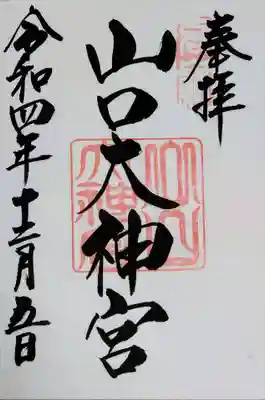 奉拝
山口大神宮
令和四年十二月五日